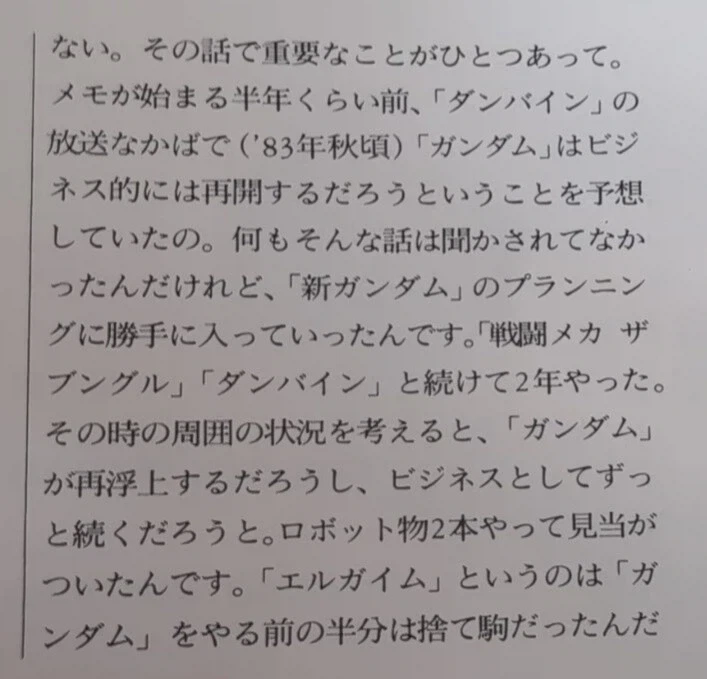 ない。その話で重要なことがひとつあって。
メモが始まる半年くらい前、「ダンバイン」の
放送なかばで(’83年秋頃)「ガンダム」はビジ
ネス的には再開するだろうということを予想
していたの。何もそんな話は聞かされてなか
ったんだけれど、「新ガンダム」のプランニン
グに勝手に入っていったんです。「戦闘メカ ザ
ブングル」「ダンバイン」と続けて2年やった。
その時の周囲の状況を考えると、「ガンダム」
が再浮上するだろうし、ビジネスとしてずっ
と続くだろうと。ロボット物2本やって見当が
ついたんです。「エルガイム」というのは「ガ
ンダム」をやる前の半分は捨て駒だったんだ